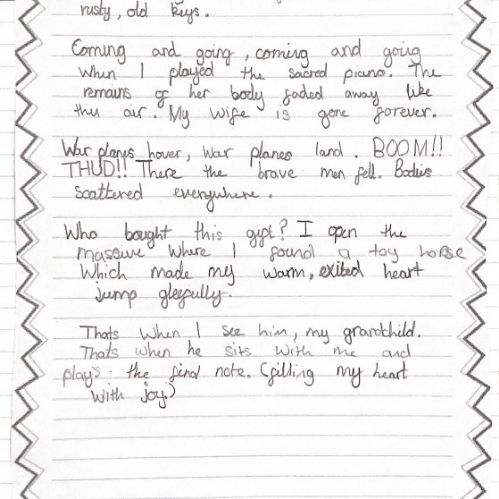 rusty, old keys.
Coming and going, coming and going
when I played the sacred piano. The
remains of her body faded away like
thu air. My wife is gone forever.
War planes hover, war planes land. BOOM!!
THUD!! There the brave men fell. Bodies
scattered everywhere.
Who bought this gift? I open the
massive where I found a toy horse
which made my warm, exited heart
jump gleefully.
Thats when I see him, my grandchild.
Thats when he sits with me and
plays the final note. (filling my heart
with joy.)